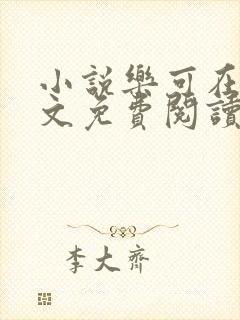 小說樂可在
文免費閱讀
李大齊